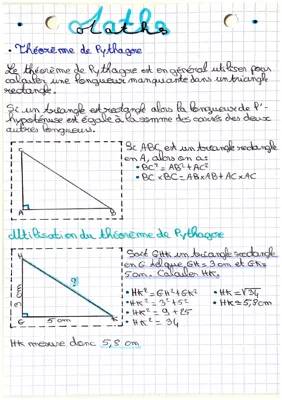 Maths
• Théorème de Pythagore
Le théorème de Pythagore est en général utiliser pour
calculer une longueur manquante dans un triangle
rectangle.
Si un triangle est rectangle alors la longueur de l'-
hypoténuse est égale à la somme des carrés des deux
autres longueurs.
Si ABC est un triangle rectangle
en A, alors on a :
• BC² = AB² + AC²
• BC × BC = AB × AB + AC × AC
C
A
B
Utilisation du théorème de Pythagore
Soit GHK un triangle rectangle
en G tel que, GH = 3 cm et GK =
5 cm. Calculer HK.
H
3 cm
?
G
5 cm
K
• HK² = GH² + GK²
• HK² = 3² + 5²
• HK² = 9 + 25
• HK² = 34
• HK = √34
• HK ≈ 5,8 cm
HK mesure donc 5,8 cm